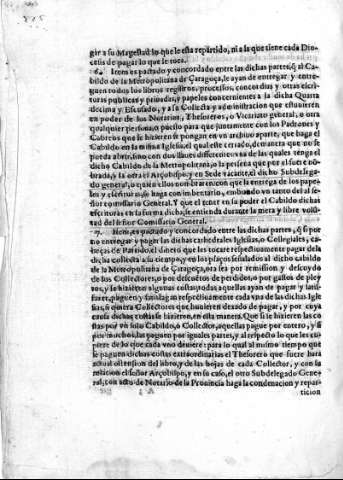 gir a su Magestad lo que le esta repartido, ni a la que tiene cada Dio-
cesis de pagar lo que le toca.
6. Item es pactado y concordado entre las dichas partes, q̃ al Ca-
bildo de la Metropolitana de Çaragoça, le ayan de entregar y entre-
guen todos los libros registros, procesos, concordias y otras escri-
turas publicas y priuadas, y papeles concernientes a la dicha Quarta
decima y Escusado, y a su Colecta y administracion que estuuieren
en poder de los Notarios, Thesoreros, o Vicariato general, o otra
qualquier persona, o puesto para que juntamente con los Padrones y
Cabreos que se hizieren se pongan en vn archiuo aparte, que haga el
Cabildo en la misma Iglesia, el qual este cerrado, de manera que no se
pueda abrir, sino con dos llaues differentes, vna de las quales tenga el
dicho Cabildo de la Metropolitana, o la persona que por el fuere nõ-
brada, y la otra el Arçobispo, y en Sede vacante, el dicho Subdelega-
do general, o quien ellos nombraren con que la entrega de los pape-
les y escrituras, se haga con inbentario, embiando vn tanto del al se-
ñor comisario General. Y que el tener en su poder el Cabildo dichas
escrituras en la forma dicha, se entienda durante la mera y libre volun-
tad del señor Comissario General.
7. Item, es pactado y concordado entre las dichas partes, q̃ si por
no entregar y pagar las dichas cathedrales Iglesias, o Collegiales, ca-
beças de Partido el dinero que les tocare respectiuamente pagar de la
dicha collecta a su tiempo, y en los plaços señalados al dicho cabildo
de la Metropolitana de Çaragoça, ora sea por remission y descuydo
de los Collectores, o por descuẽtos de perdidos, o por gastos de pley-
tos, y se hizieren algunas costas, todas aquellas ayan de pagar y satis-
fazer, paguen y satisfagan respectiuamente cada vna de las dichas Igle-
sias, si quiera Collectores que huuieren dexado de pagar, y por cuya
causa dichas costas se hizieren, en esta manera. Que si se hizieren las co
stas por vn solo Cabildo, o Collector, aquellas pague por entero, y si
por muchos, las paguen por iguales partes, y al respecto lo que les cu-
piere de lo que cada vno deuiere: para lo qual al mismo tiempo que
se paguen dichas costas extraordinarias el Thesorero que fuere hara
actual ostension del libro, y de las hojas de cada Collector, y con su
relacion el señor Arçobispo, y en su caso, el otro Subdelegado Gene-
ral, con acto de Notario de la Prouincia haga la condenacion y repar-
ticion